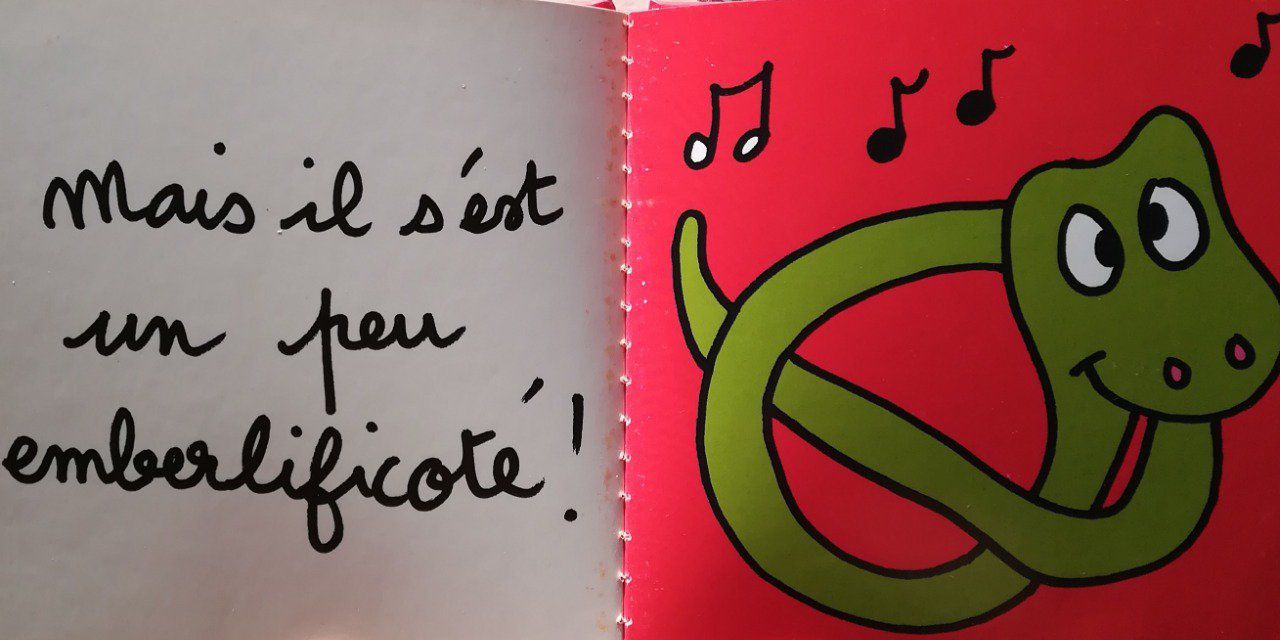 Mais il s'est
un peu
emberlificoté !